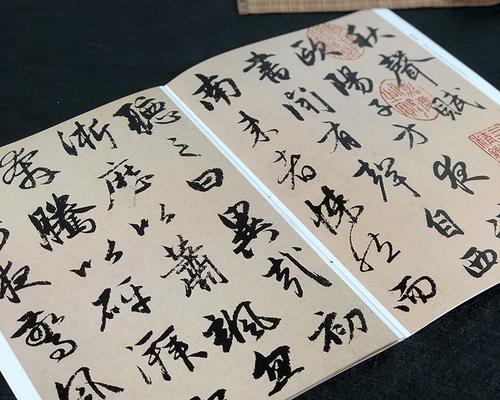 秋聲賦
歐陽子方夜
書聞有聲自西
南来者悚然而
聽之曰異哉初
淅歷以蕭颯忽
奔騰以砰湃
夜驚風